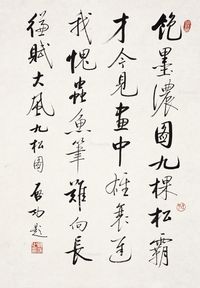 飽墨濃圖九棵松霸
才今見畫中雄衰遲
我愧蟲魚筆難向長
賦大風 九松圖 啟功題